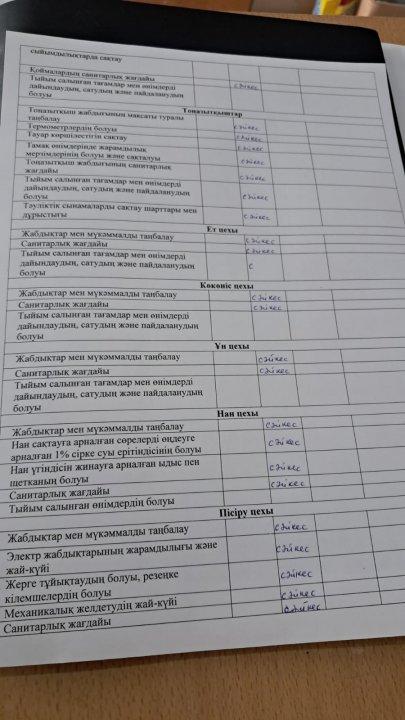 сыйымдылықтарда сақтау
Қоймалардың санитарлық жағдайы
Тыйым салынған тағамдар мен өнімдерді сәйкес
дайындаудың, сатудың және пайдаланудың
болуы
Тоңазытқыштар
Тоңазытқыш жабдығының мақсаты туралы
таңбалау сәйкес
Термометрлердің болуы сәйкес
Тауар көршілестігін сақтау сәйкес
Тамақ өнімдерінде жарамдылық
мерзімдерінің болуы және сақталуы сәйкес
Тоңазытқыш жабдығының санитарлық
жағдайы сәйкес
Тыйым салынған тағамдар мен өнімдерді
дайындаудың, сатудың және пайдаланудың сәйкес
болуы
Тәуліктік сынамаларды сақтау шарттары мен
дұрыстығы сәйкес
Ет цехы
Жабдықтар мен мүкәммалды таңбалау сәйкес
Санитарлық жағдайы сәйкес
Тыйым салынған тағамдар мен өнімдерді
дайындаудың, сатудың және пайдаланудың с
болуы
Көкөніс цехы
Жабдықтар мен мүкәммалды таңбалау сәйкес
Санитарлық жағдайы сәйкес
Тыйым салынған тағамдар мен өнімдерді
дайындаудың, сатудың және пайдаланудың
болуы
Ұн цехы
Жабдықтар мен мүкәммалды таңбалау сәйкес
Санитарлық жағдайы сәйкес
Тыйым салынған тағамдар мен өнімдерді
дайындаудың, сатудың және пайдаланудың
болуы
Нан цехы
Жабдықтар мен мүкәммалды таңбалау сәйкес
Нан сақтауға арналған сөрелерді өңдеуге
арналған 1% сірке суы ерітіндісінің болуы сәйкес
Нан үгіндісін жинауға арналған ыдыс пен
щетканың болуы сәйкес
Санитарлық жағдайы сәйкес
Тыйым салынған өнімдердің болуы
Пісіру цехы
Жабдықтар мен мүкәммалды таңбалау сәйкес
Электр жабдықтарының жарамдылығы және
жай-күйі сәйкес
Жерге тұйықтаудың болуы, резеңке
кілемшелердің болуы сәйкес
Механикалық желдетудің жай-күйі сәйкес
Санитарлық жағдайы сәйкес